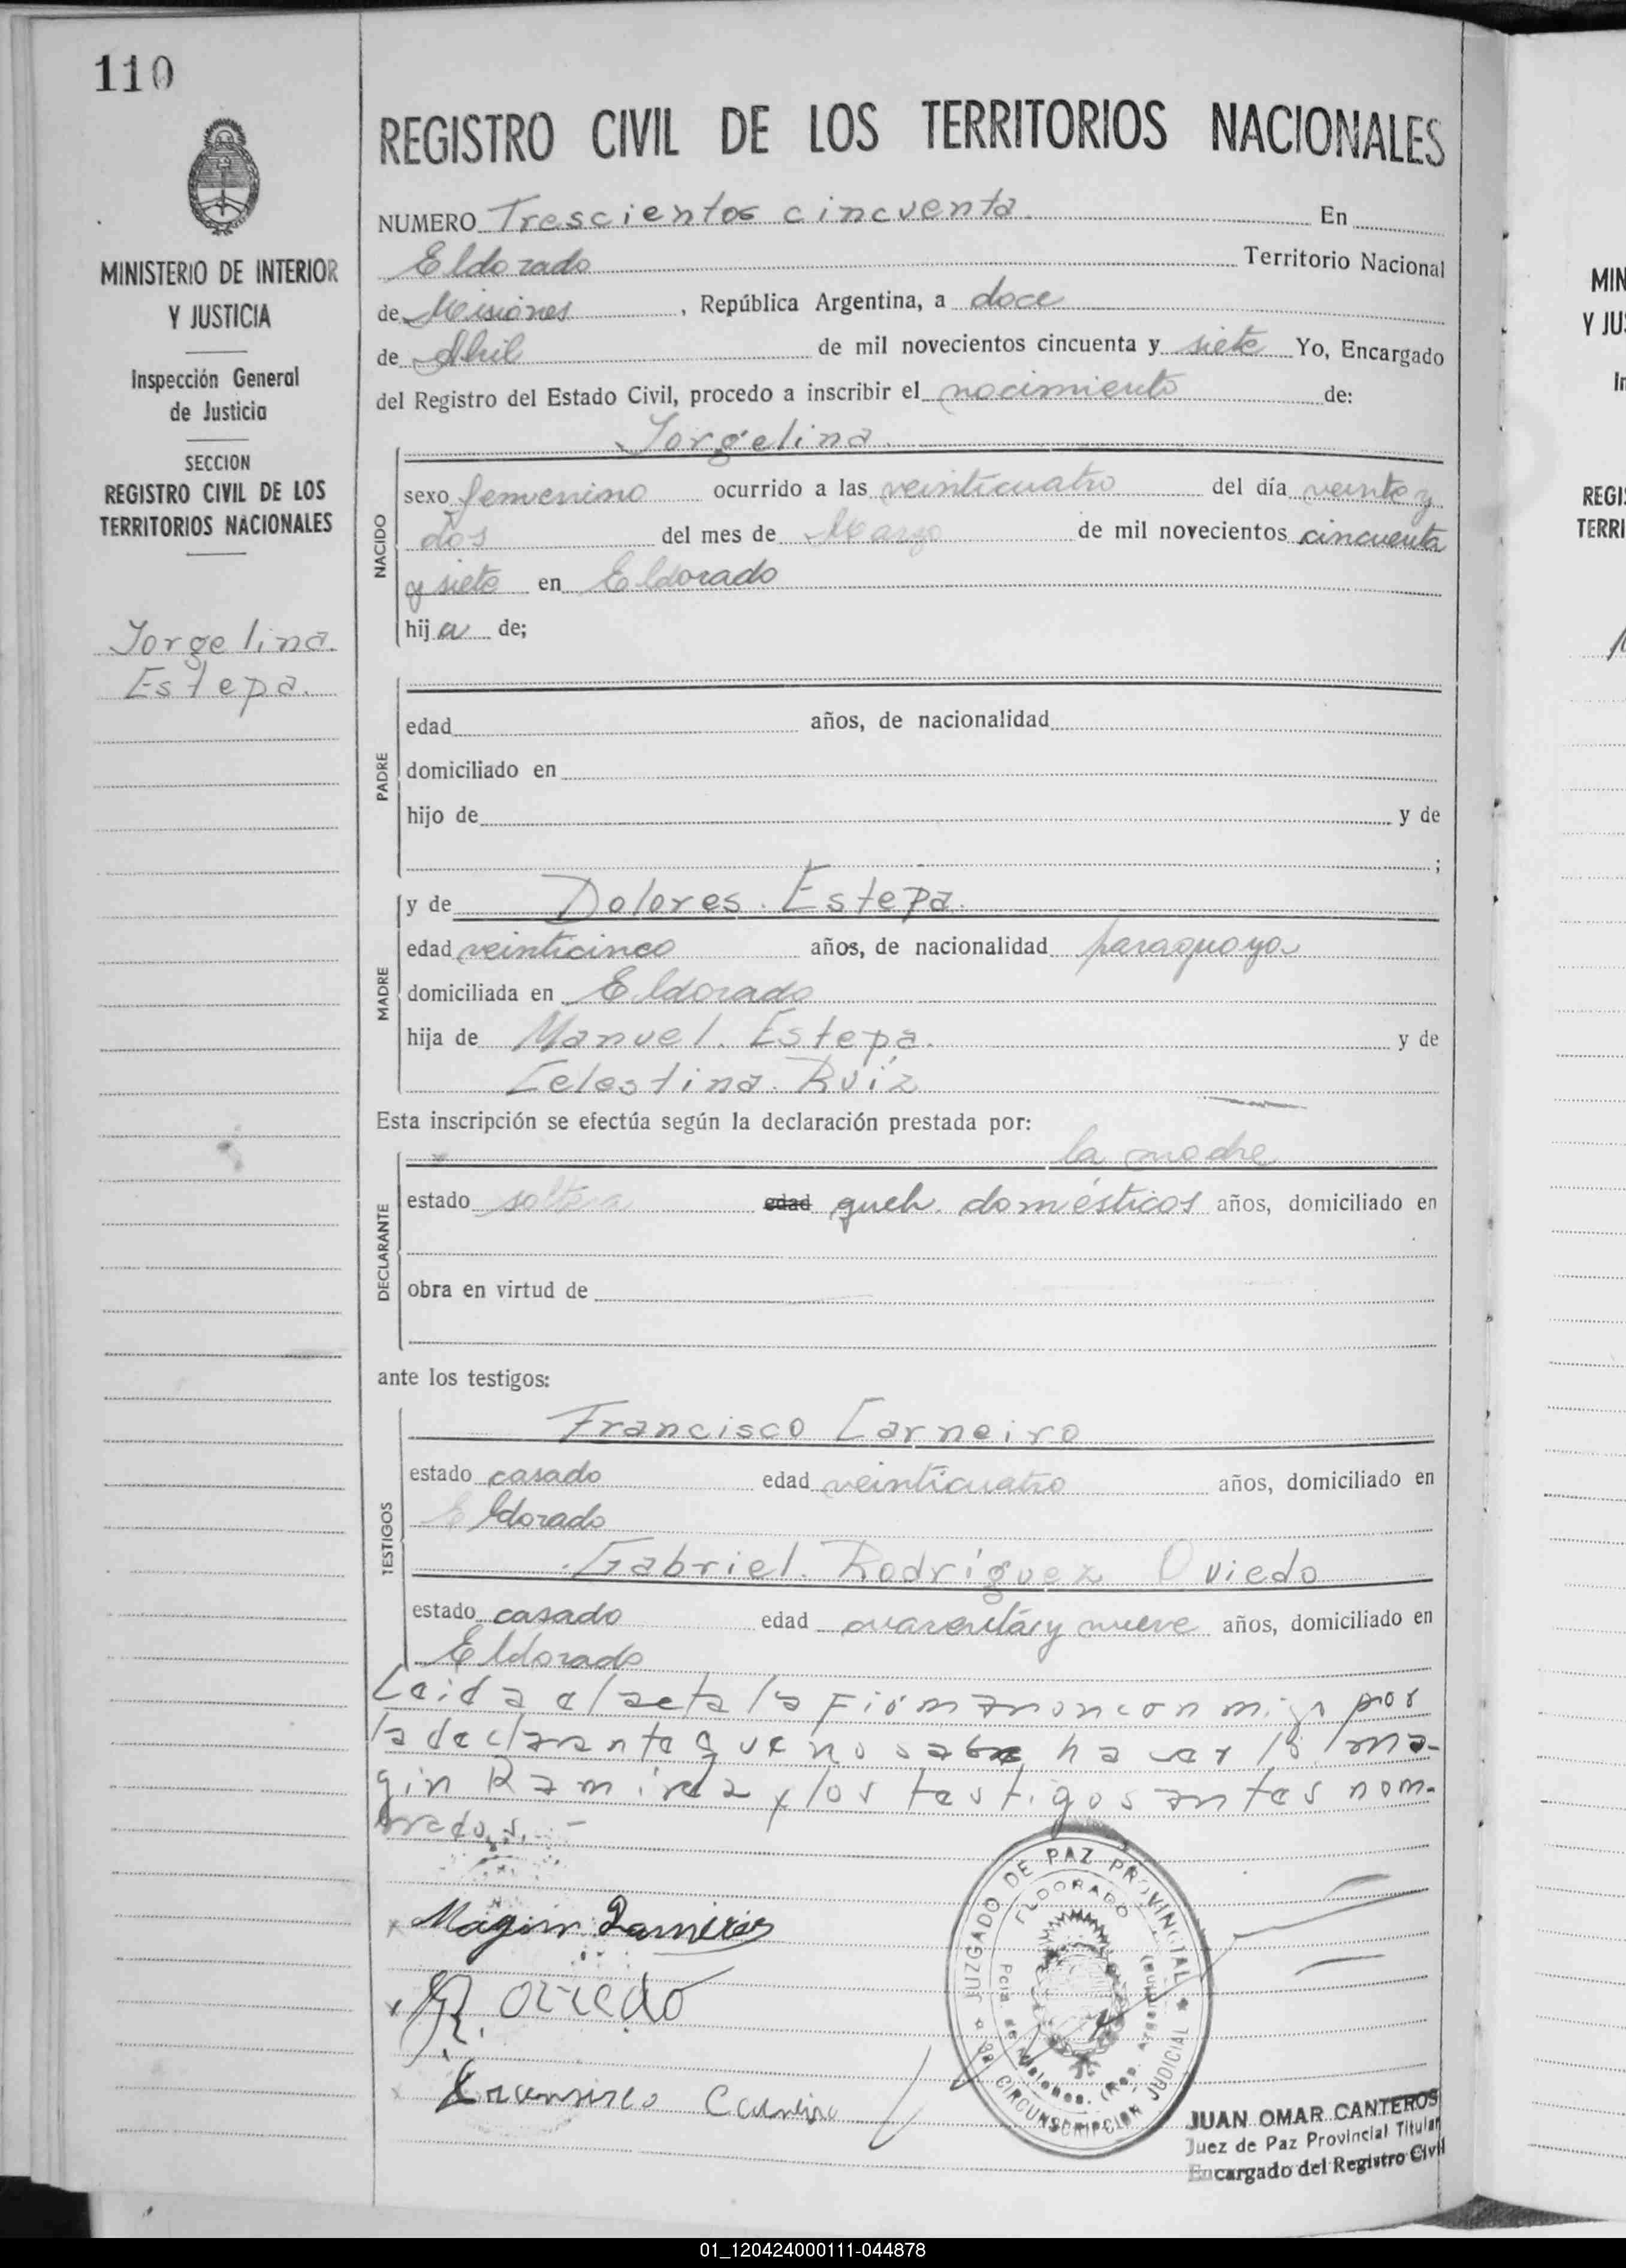 110
MINISTERIO DE INTERIOR
Y JUSTICIA
Inspección General
de Justicia
SECCION
REGISTRO CIVIL DE LOS
TERRITORIOS NACIONALES
Jorgelina.
Estepa.
REGISTRO CIVIL DE LOS TERRITORIOS NACIONALES
NUMERO Trescientos cincuenta. En
Eldorado Territorio Nacional
de Misiones, República Argentina, a doce
de Abril de mil novecientos cincuenta y siete Yo, Encargado
del Registro del Estado Civil, procedo a inscribir el nacimiento de:
Jorgelina.
NACIDO
sexo femenino ocurrido a las veinticuatro del día veinte y
dos del mes de Marzo de mil novecientos cincuenta
y siete en Eldorado
hija de;
PADRE
edad años, de nacionalidad
domiciliado en
hijo de y de
;
MADRE
y de Dolores. Estepa.
edad veinticinco años, de nacionalidad paraguaya
domiciliada en Eldorado
hija de Manuel. Estepa. y de
Celestina. Ruiz
Esta inscripción se efectúa según la declaración prestada por:
la madre
DECLARANTE
estado soltera edad queh. domésticos años, domiciliado en
obra en virtud de
ante los testigos:
TESTIGOS
Francisco Carneiro
estado casado edad veinticuatro años, domiciliado en
Eldorado
Gabriel. Rodríguez Oviedo
estado casado edad cuarenta y nueve años, domiciliado en
Eldorado
Leida el acta la firman conmigo por
la declarante que no sabe hacerlo Ma-
gin Ramirez y los testigos antes nom-
brados. -
Magin Ramirez
R. Oviedo
Francisco Carneiro
JUZGADO DE PAZ PROVINCIAL
ELDORADO
Pcia. de Misiones. (Rep. Argentina)
CIRCUNSCRIPCION JUDICIAL
JUAN OMAR CANTEROS
Juez de Paz Provincial Titular
Encargado del Registro Civil
MIN
Y JU
In
REGI
TERRI
01_120424000111-044878